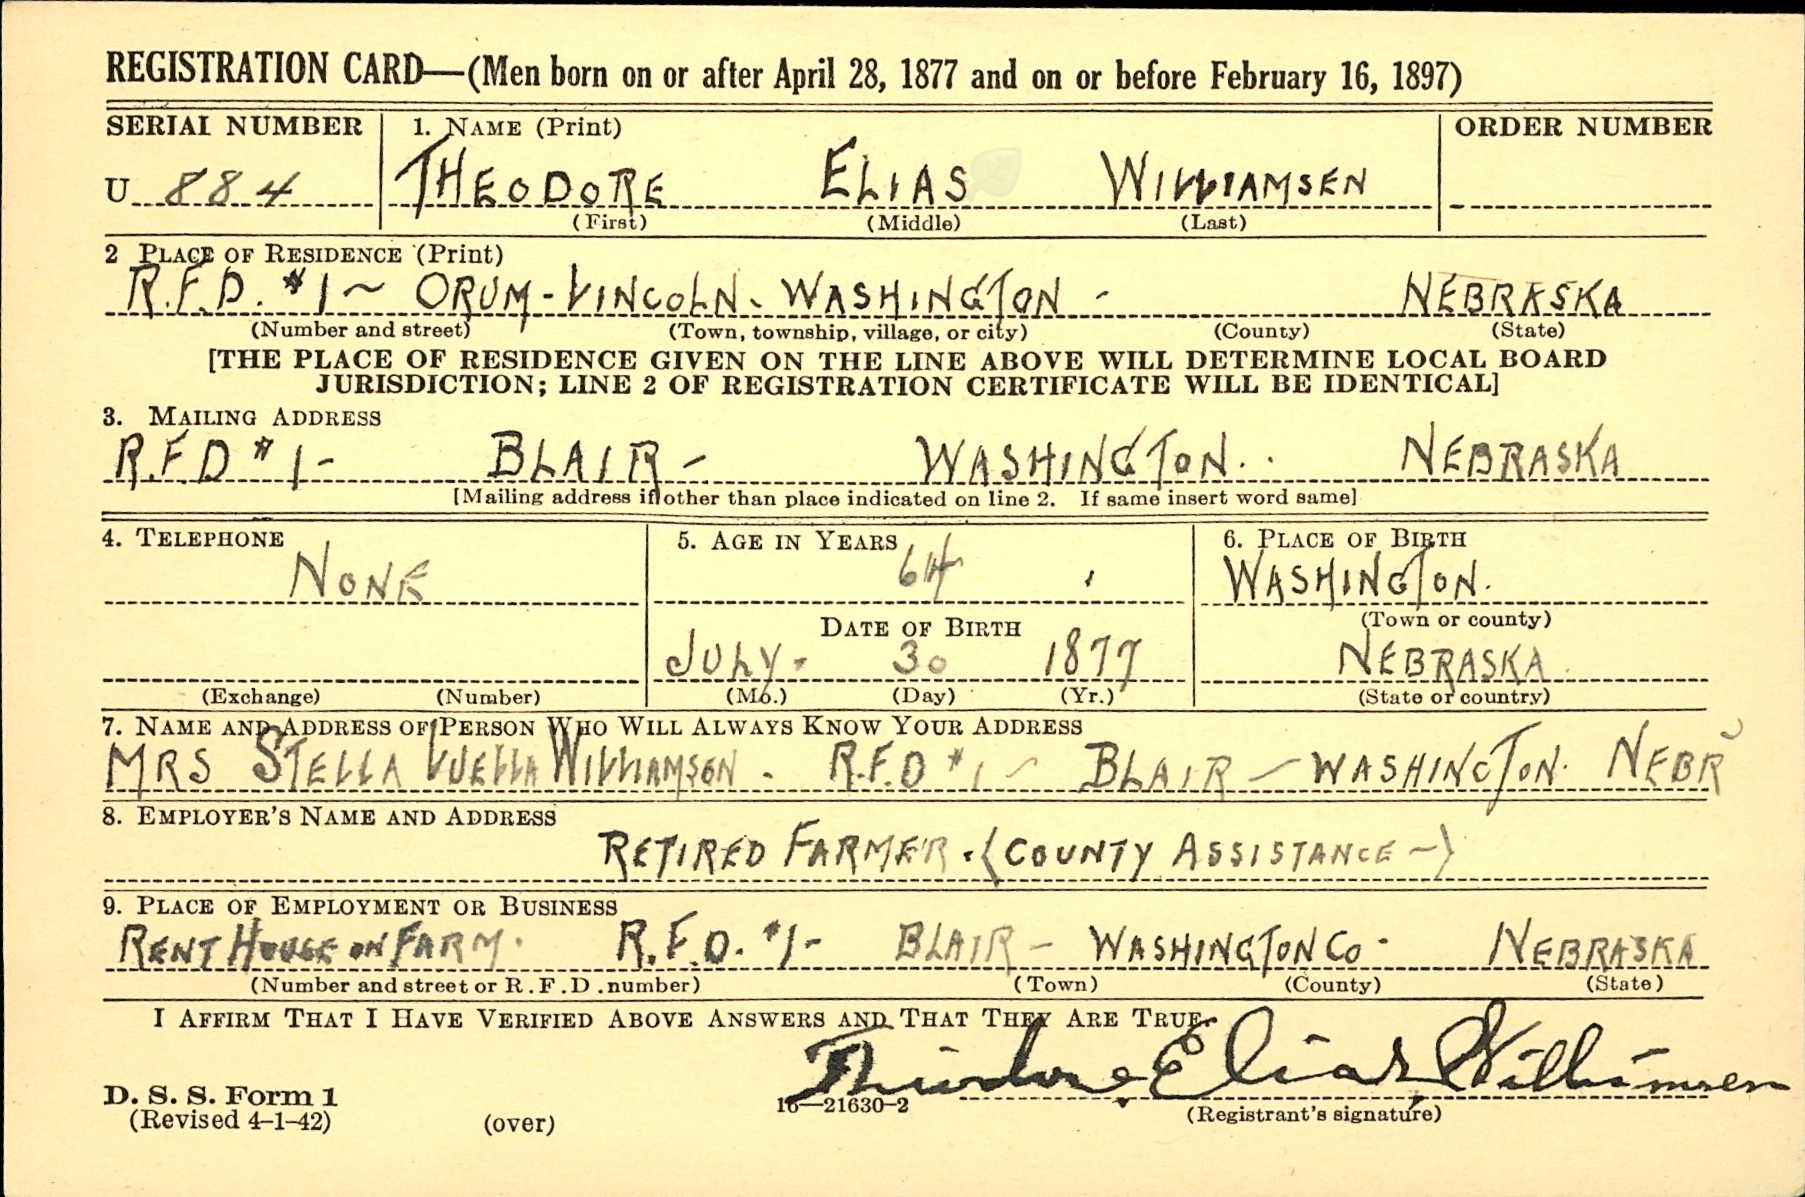 REGISTRATION CARD—(Men born on or after April 28, 1877 and on or before February 16, 1897)
SERIAL NUMBER 1. NAME (Print) ORDER NUMBER
U 884 THEODORE ELIAS WILLIAMSEN
(First) (Middle) (Last)
2 PLACE OF RESIDENCE (Print)
R.F.D. #1 ~ ORUM - LINCOLN - WASHINGTON - NEBRASKA
(Number and street) (Town, township, village, or city) (County) (State)
[THE PLACE OF RESIDENCE GIVEN ON THE LINE ABOVE WILL DETERMINE LOCAL BOARD
JURISDICTION; LINE 2 OF REGISTRATION CERTIFICATE WILL BE IDENTICAL]
3. MAILING ADDRESS
R.F.D #1 - BLAIR - WASHINGTON. NEBRASKA
[Mailing address if other than place indicated on line 2. If same insert word same]
4. TELEPHONE 5. AGE IN YEARS 6. PLACE OF BIRTH
NONE 64 WASHINGTON.
(Town or county)
DATE OF BIRTH
JULY - 30 1877 NEBRASKA
(Exchange) (Number) (Mo.) (Day) (Yr.) (State or country)
7. NAME AND ADDRESS OF PERSON WHO WILL ALWAYS KNOW YOUR ADDRESS
MRS STELLA LUELLA WILLIAMSEN - R.F.D #1 ~ BLAIR - WASHINGTON. NEBR
8. EMPLOYER'S NAME AND ADDRESS
RETIRED FARMER. (COUNTY ASSISTANCE -)
9. PLACE OF EMPLOYMENT OR BUSINESS
RENT HOUSE ON FARM. R.F.D. #1 - BLAIR - WASHINGTON CO - NEBRASKA
(Number and street or R.F.D. number) (Town) (County) (State)
I AFFIRM THAT I HAVE VERIFIED ABOVE ANSWERS AND THAT THEY ARE TRUE.
Theodore Elias Williamsen
D. S. S. Form 1 16—21630-2
(Revised 4-1-42) (over) (Registrant's signature)